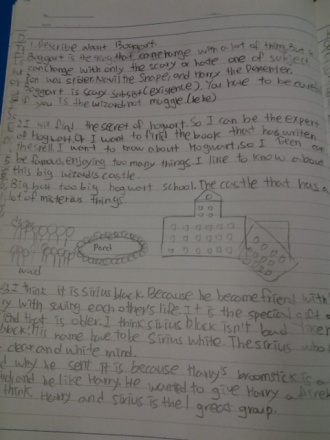 1. Describe about Boggart.
Boggart is the thing that can change with a lot of thing. But
can change with only the scary or hate one of subject
Ron was spider. Nevil the Snape, and Harry the Dementer.
Boggart is scary subject. You have to be careful
if you is the wizard not muggle. (hehe)
2. I will find the secret of hogwort. So I can be the expert
of hogwort. I want to find the book that has writen
the spell I want to know about Hogwort. So I been
be famous. Enjoying too many things. I like to know about
this big wizards castle
Big but too big hogwort school. The castle that has a
lot of misterius things
Pont
wood
3. I think it is Sirius black. Because he become friend with
with saving each other's life. It is the special gift
and that is older. I think sirius black isn't
black. His name have to be Sirius White. The sirius
clear and white mind.
why he sent it is because Harry's broomstick is
and he like Harry. He wanted to give Harry a
think Harry and Sirius is the 1 great group.